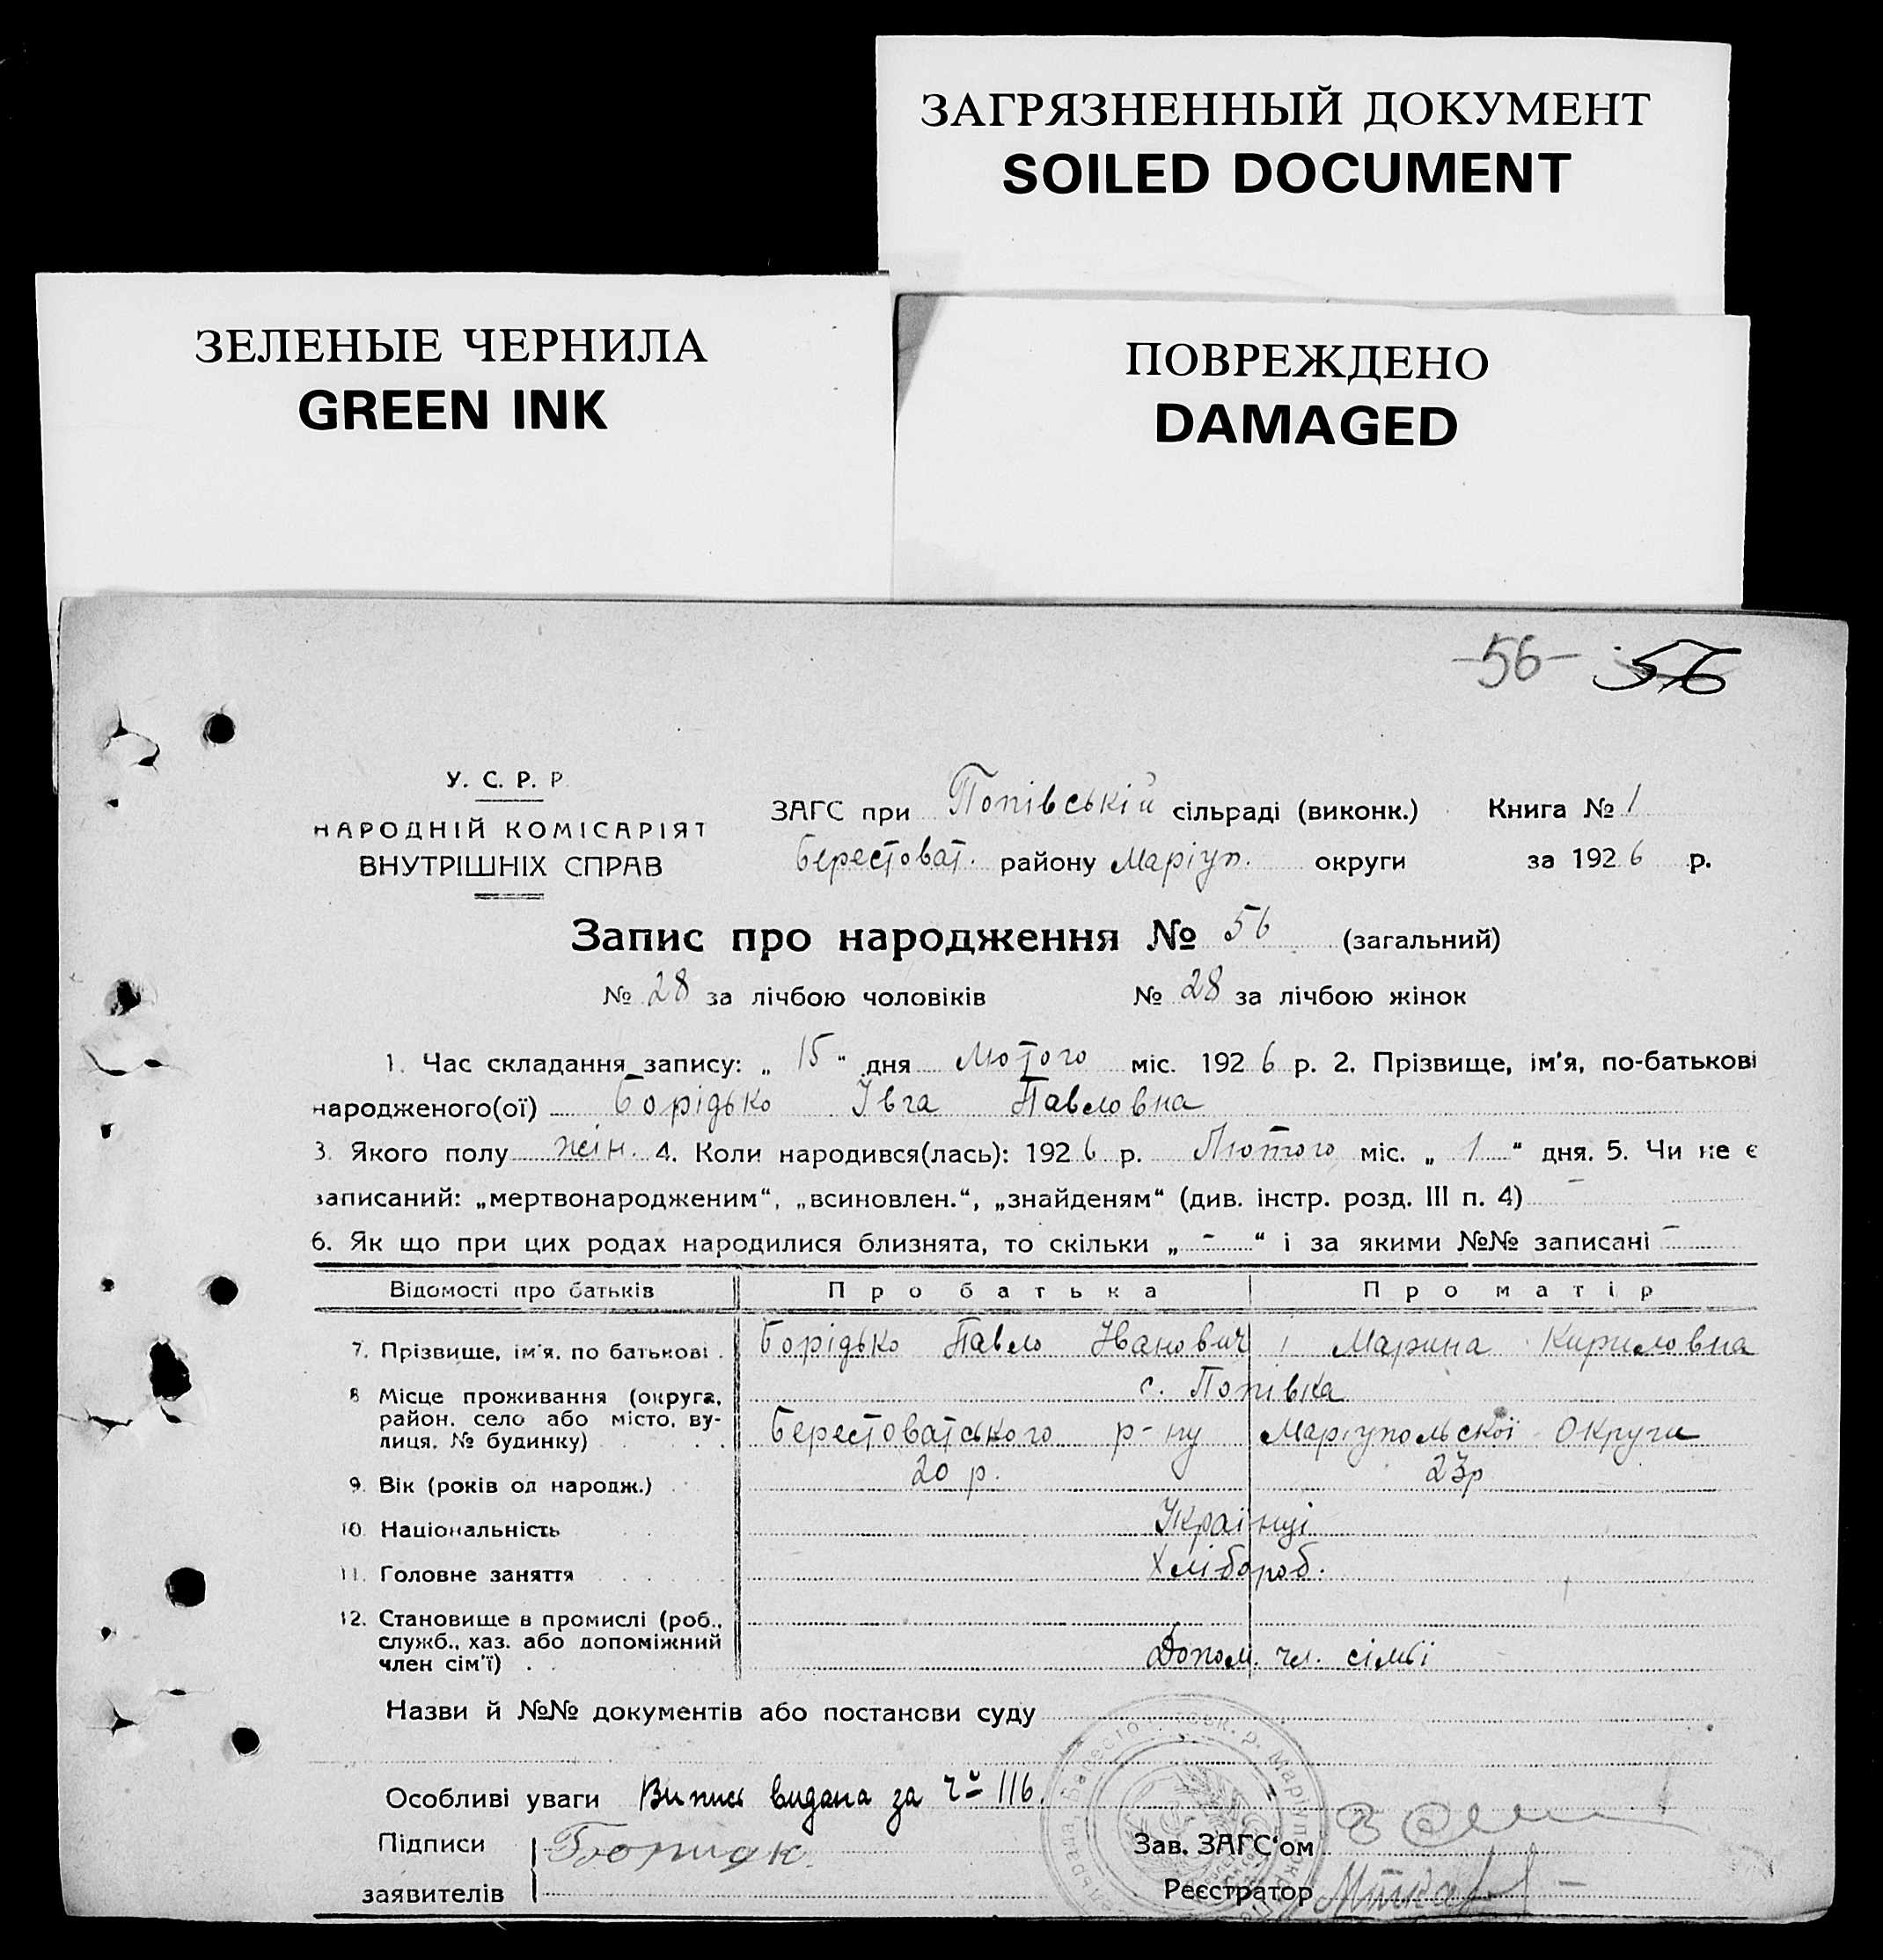 ЗАГРЯЗНЕННЫЙ ДОКУМЕНТ
SOILED DOCUMENT
ЗЕЛЕНЫЕ ЧЕРНИЛА
GREEN INK
ПОВРЕЖДЕНО
DAMAGED
-56- 56
У. С. Р. Р
НАРОДНІЙ КОМІСАРІЯТ
ВНУТРІШНІХ СПРАВ
ЗАГС при Попівській сільраді (виконк.) Книга № 1
Берестоват. району Маріуп. округи за 1926 р.
Запис про народження № 56 (загальний)
№ 28 за лічбою чоловіків № 28 за лічбою жінок
1. Час складання запису: „ 15 “ дня Лютого міс. 1926 р. 2. Прізвище, ім'я, по-батькові
народженого(ої) Борідько Івга Павловна
3. Якого полу жін. 4. Коли народився(лась): 1926 р. Лютого міс. „ 1 “ дня. 5. Чи не є
записаний: „мертвонародженим“, „всиновлен.“, „знайденям“ (див. інстр. розд. III п. 4) –
6. Як що при цих родах народилися близнята, то скільки „ – “ і за якими №№ записані –
Відомості про батьків Про батька Про матір
7. Прізвище, ім'я, по батькові . Борідько Павло Іванович і Марина Кириловна
8 Місце проживання (округа, район, село або місто, вулиця, № будинку) с. Попівка
Берестоватського р-ну Маріупольскої Округи
9. Вік (років од народж.) 20 р. 23р
10. Національність Українці
11. Головне заняття Хлібороб.
12. Становище в промислі (роб.,
служб., хаз. або допоміжний
член сім'ї) . Допом. чл. сімьї
Назви й №№ документів або постанови суду
Особливі уваги Випись видана за № 116.
Підписи
заявителів
Зав. ЗАГС'ом
Реєстратор